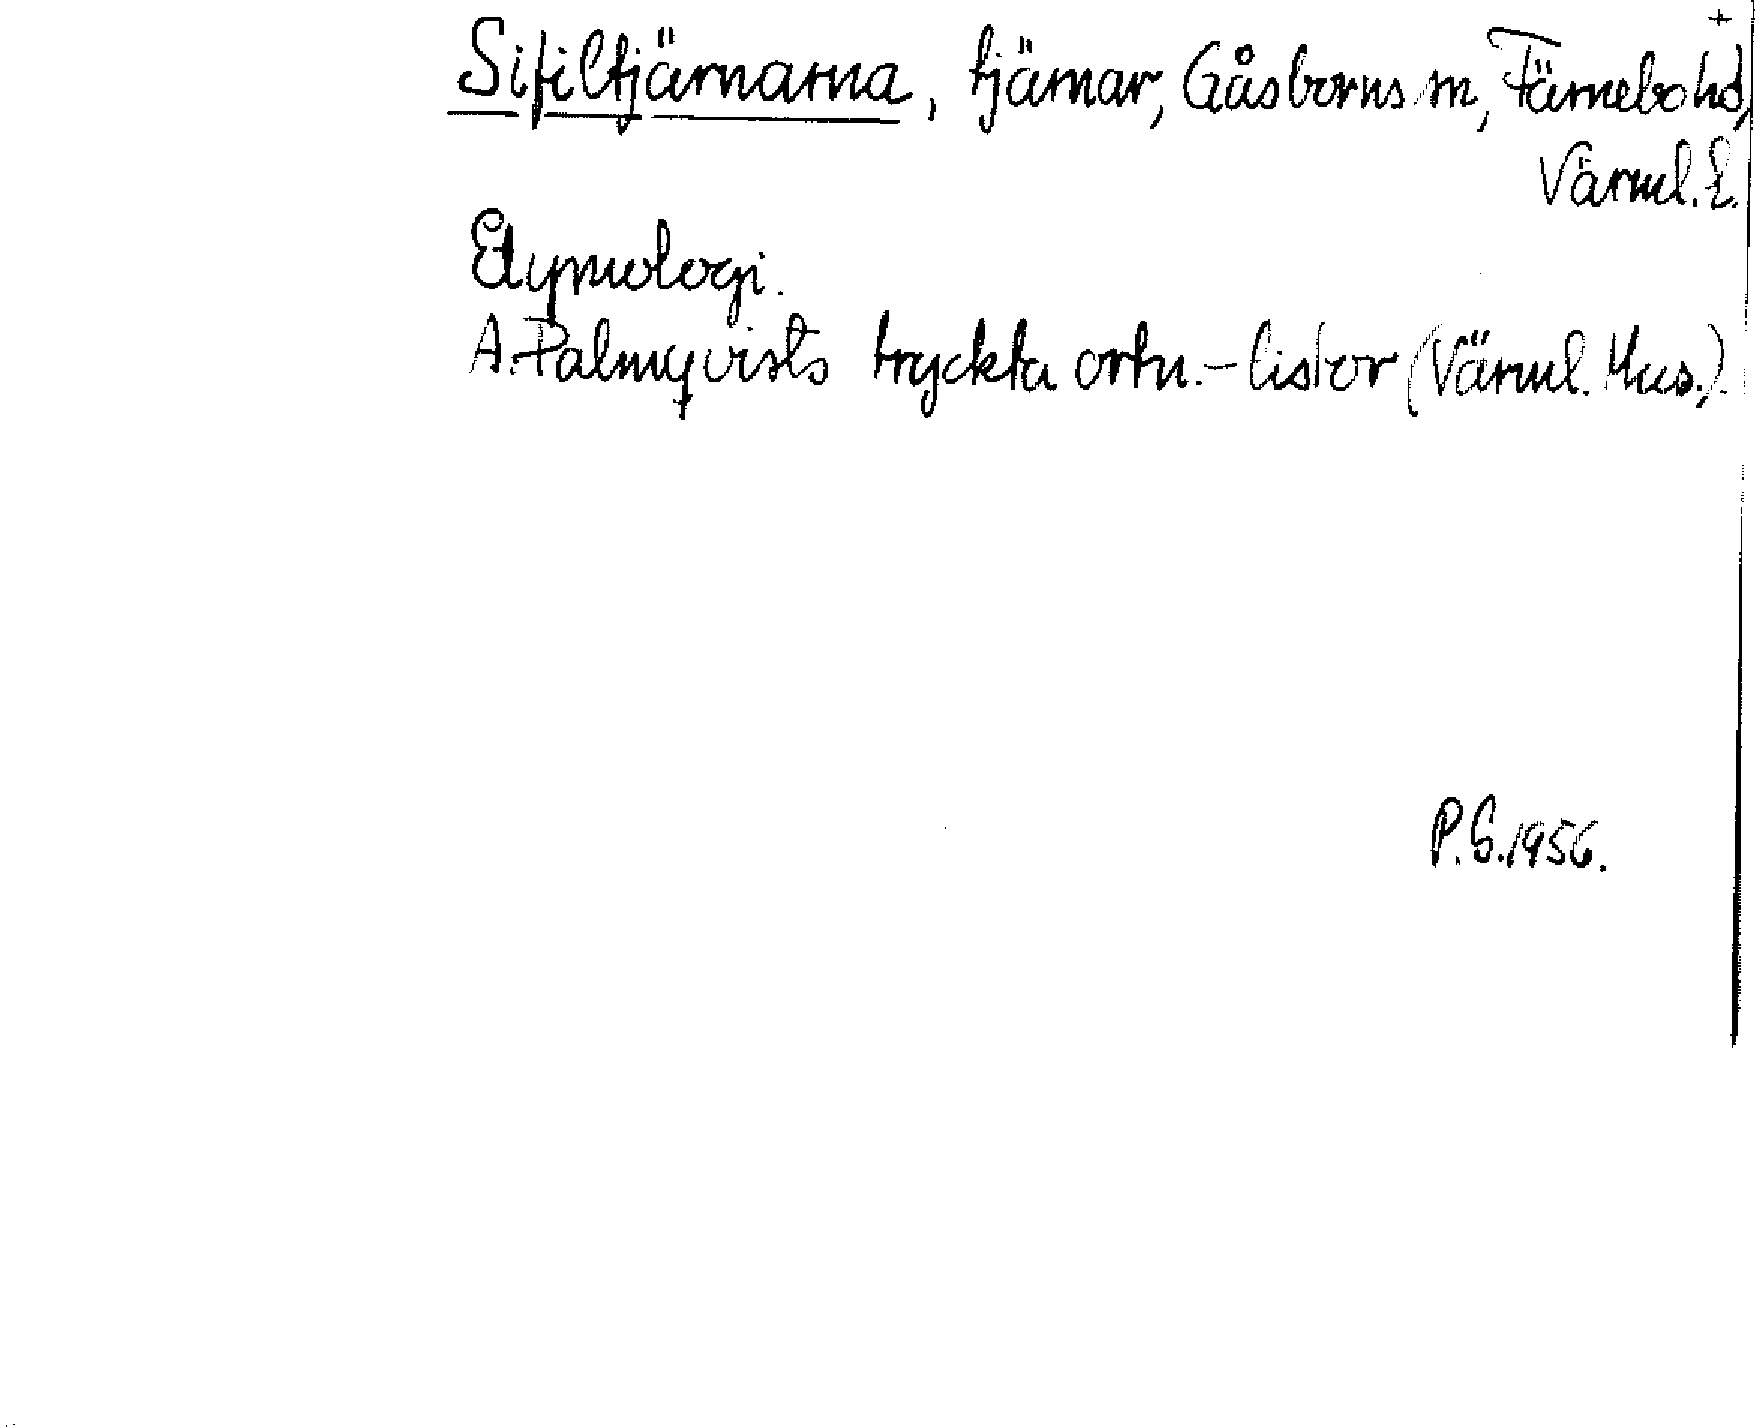 +
Sifiltjärnarna, tjärnar, Gåsborns sn, Färnebo hd,
Värml. L.
Etymologi.
A. Palmqvists tryckta ortn.-listor (Värml. Mus.).
P.G. 1956.